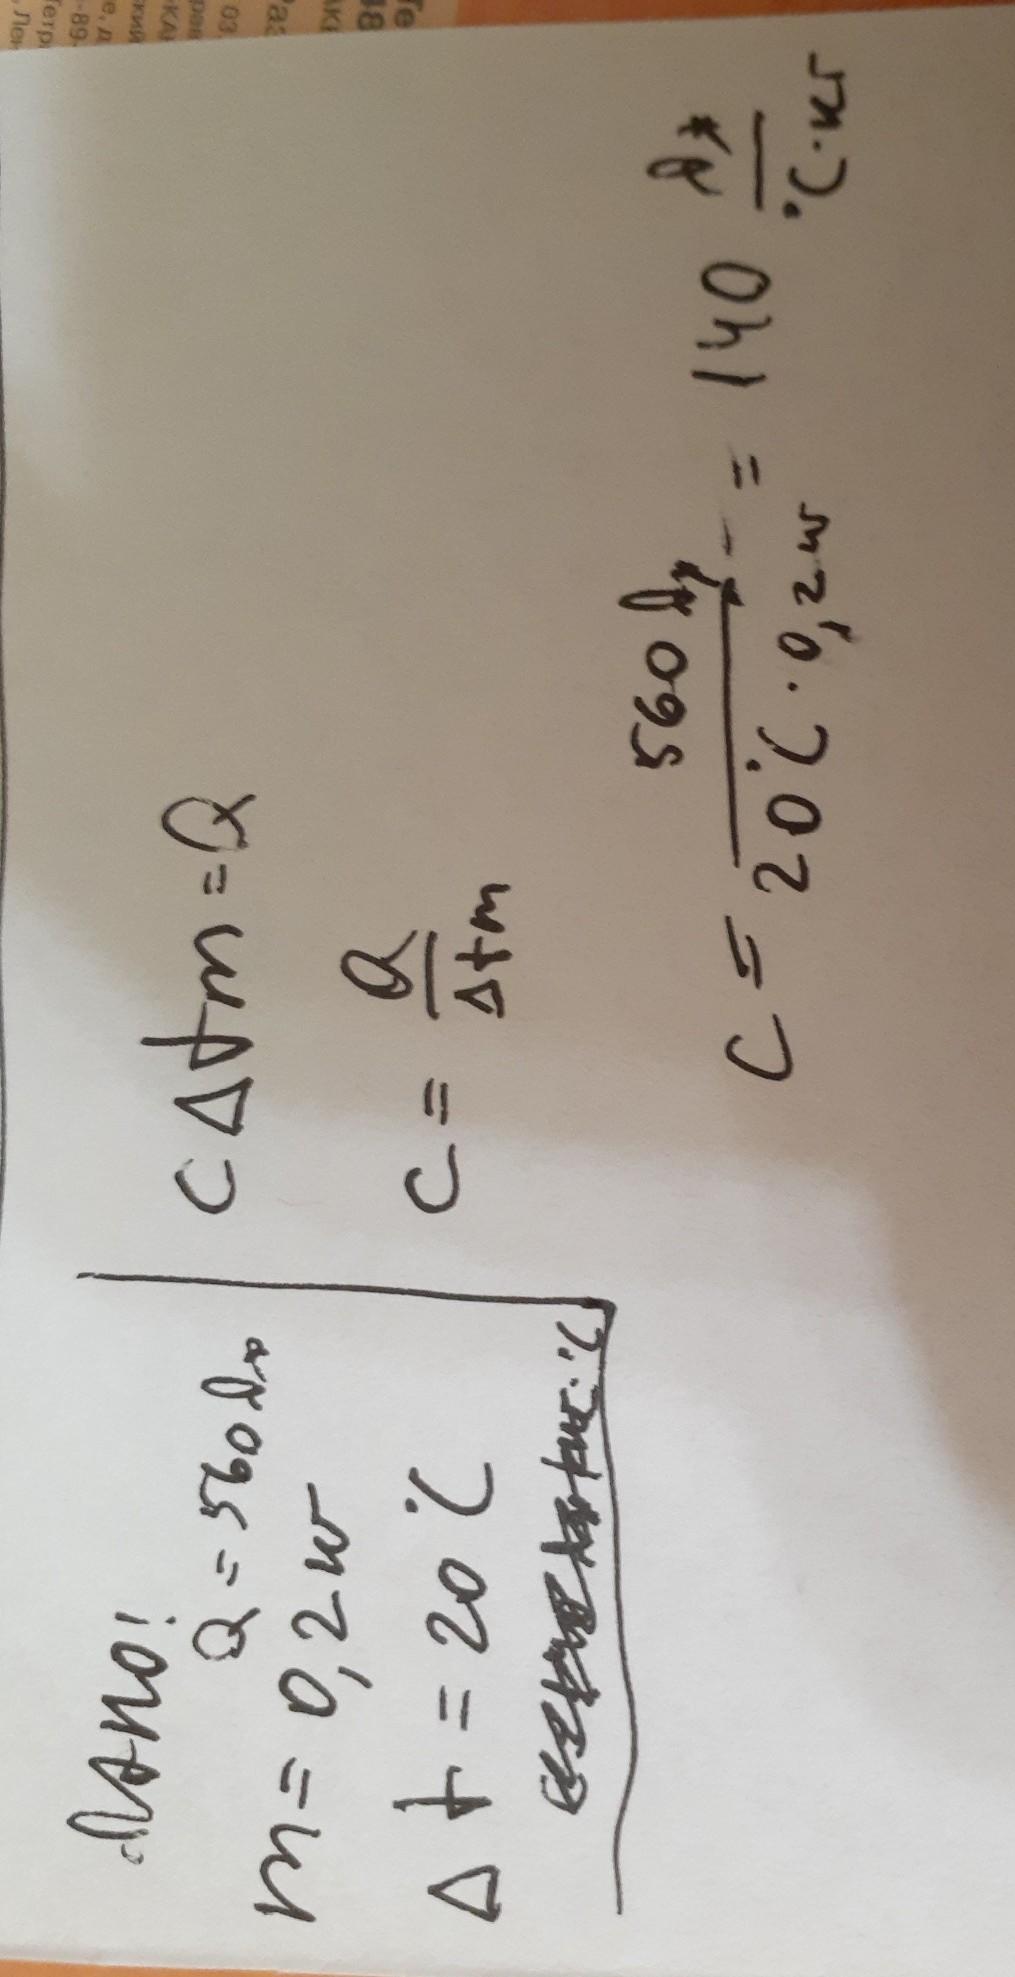 Дано:
Q = 560 Дж
m = 0,2 кг
Δt = 20°C
cΔtm = Q
c = Q / Δtm
c = 560 Дж / 20°C · 0,2 кг = 140 Дж / кг·°C